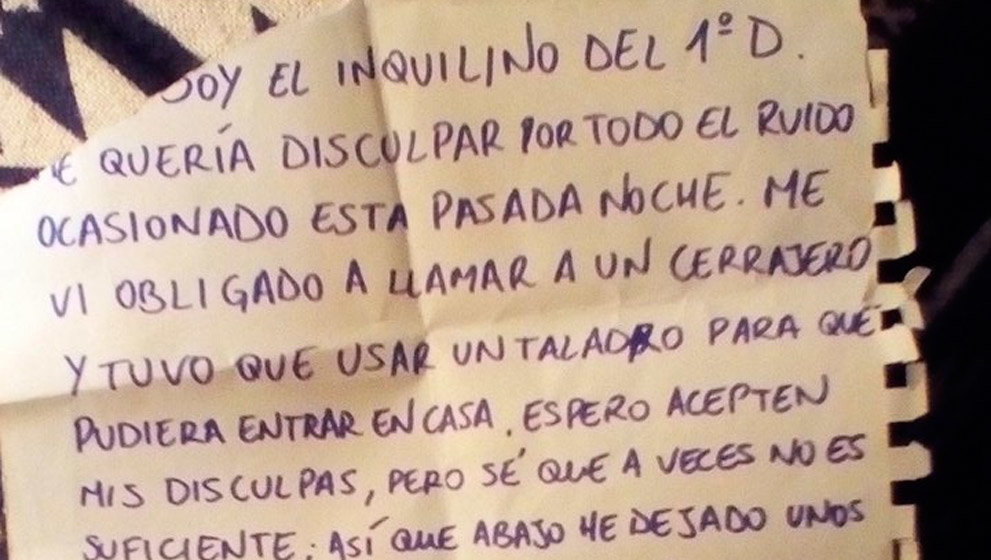 SOY EL INQUILINO DEL 1º D.
QUERÍA DISCULPAR POR TODO EL RUIDO
OCASIONADO ESTA PASADA NOCHE. ME
VI OBLIGADO A LLAMAR A UN CERRAJERO
Y TUVO QUE USAR UN TALADRO PARA QUE
PUDIERA ENTRAR EN CASA. ESPERO ACEPTEN
MIS DISCULPAS, PERO SÉ QUE A VECES NO ES
SUFICIENTE; ASÍ QUE ABAJO HE DEJADO UNOS